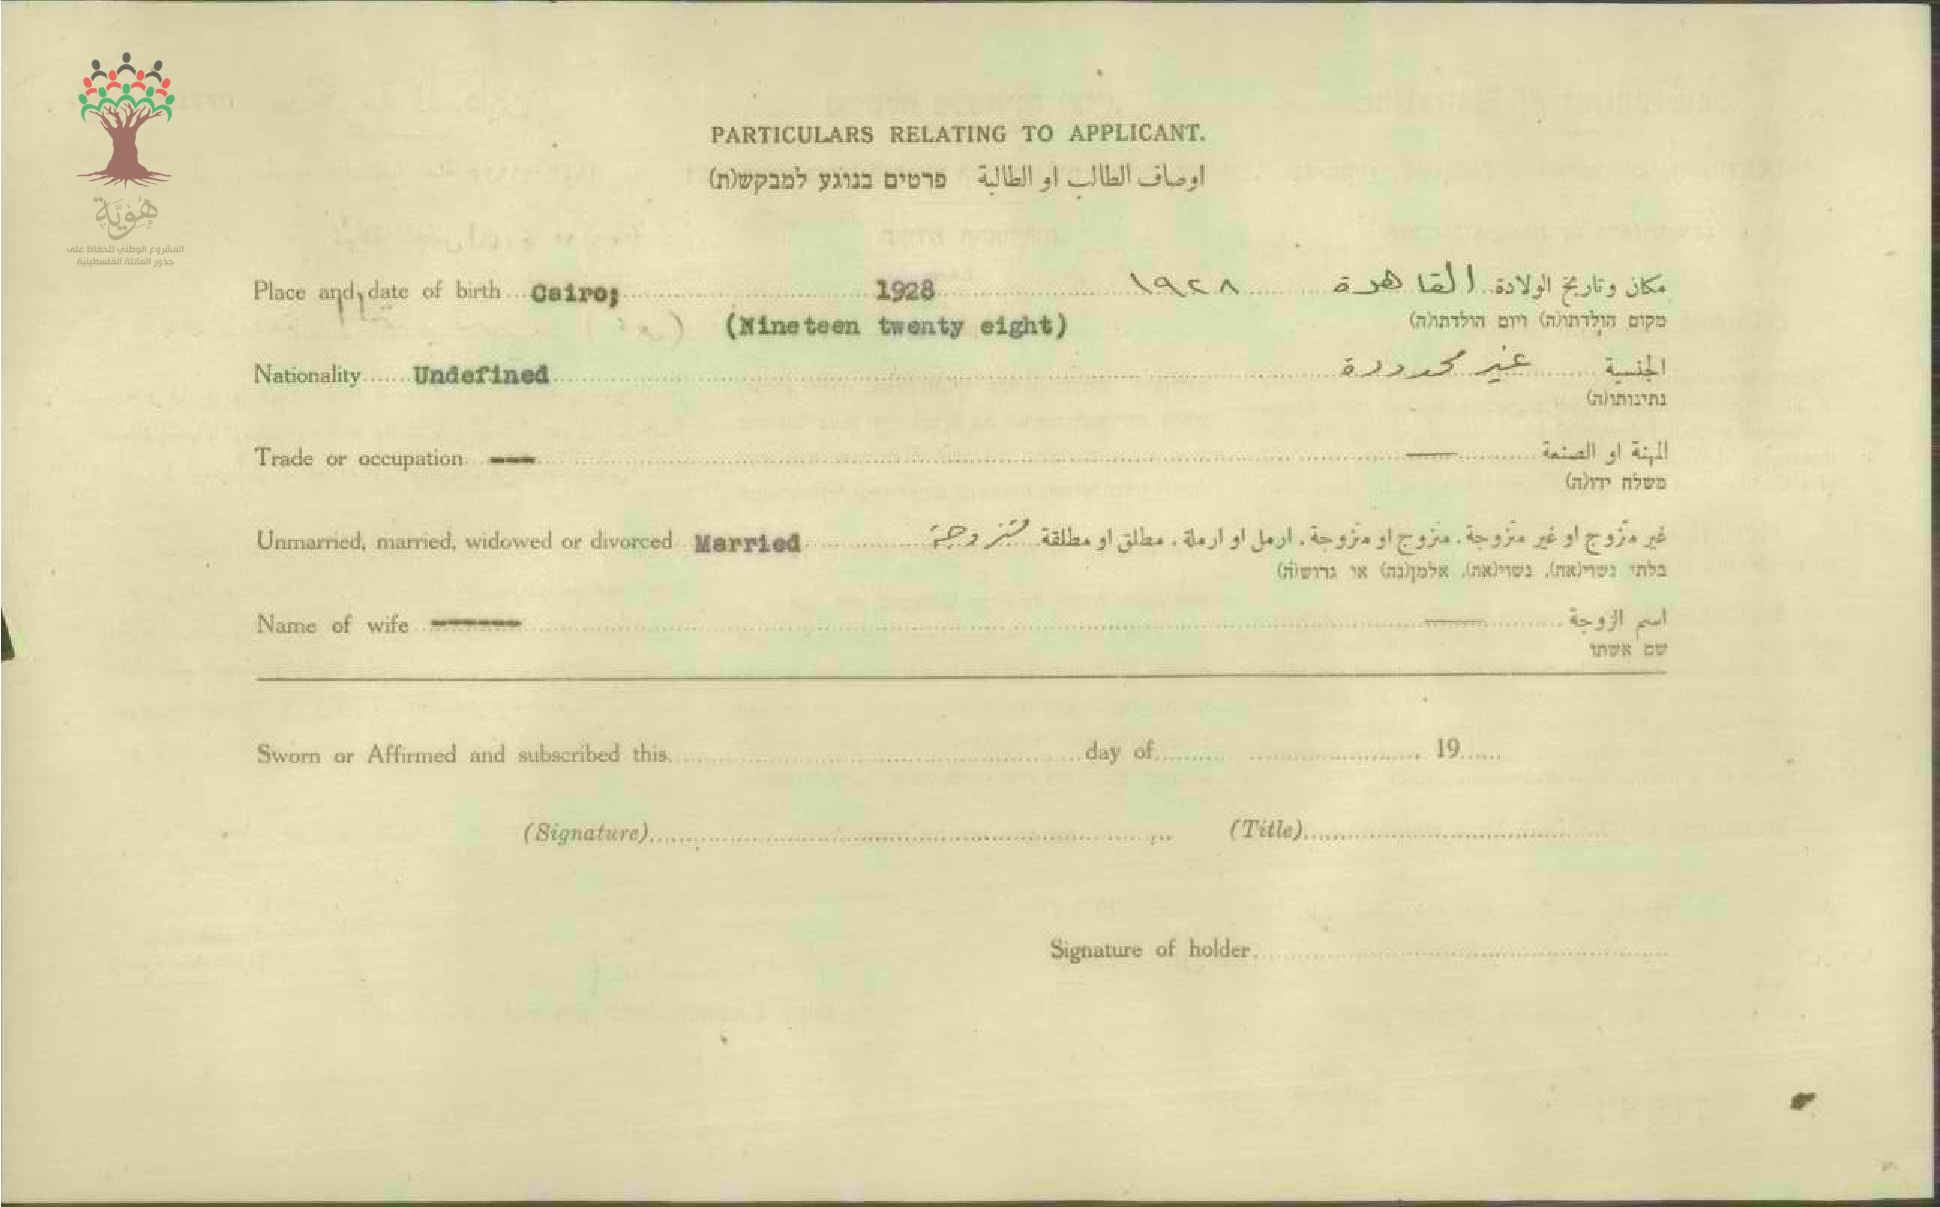 هُوِيَّة
المشروع الوطني للحفاظ على
جذور العائلة الفلسطينية
PARTICULARS RELATING TO APPLICANT.
اوصاف الطالب او الطالبة פרטים בנוגע למבקש(ת)
Place and date of birth Cairo; 1928 ١٩٢٨ القاهرة مكان وتاريخ الولادة
(Nineteen twenty eight) מקום הולדתו(ה) ויום הולדתו(ה)
Nationality Undefined غير محدودة الجنسية
נתינותו(ה)
Trade or occupation — — المهنة او الصنعة
משלח ידו(ה)
Unmarried, married, widowed or divorced Married غير متزوج او غير متزوجة، متزوج او متزوجة، ارمل او ارملة، مطلق او مطلقة متزوجة
בלתי נשוי(אה), נשוי(אה), אלמן(נה) או גרוש(ה)
Name of wife — — اسم الزوجة
שם אשתו
Sworn or Affirmed and subscribed this day of 19
(Signature) (Title)
Signature of holder